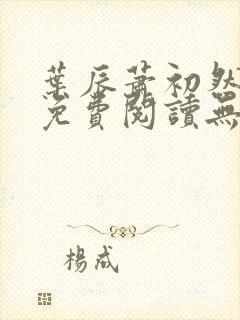 葉辰蕭初然
免費閱讀無
楊成